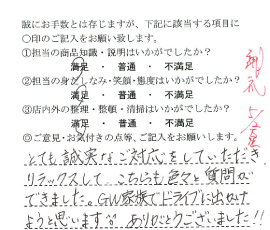 誠にお手数とは存じますが、下記に該当する項目に
〇印のご記入をお願い致します。
①担当の商品知識・説明はいかがでしたか？
満足 ・ 普通 ・ 不満足
②担当の身だしなみ・笑顔・態度はいかがでしたか？
満足 ・ 普通 ・ 不満足
③店内外の整理・整頓・清掃はいかがでしたか？
満足 ・ 普通 ・ 不満足
◎ご意見・お気付きの点等、ご記入をお願いします。
とても誠実なご対応をしていただき
リラックスして こちらも色々と質問が
できました。GW家族でドライブに出かけ
ようと思います ありがとうございました!!